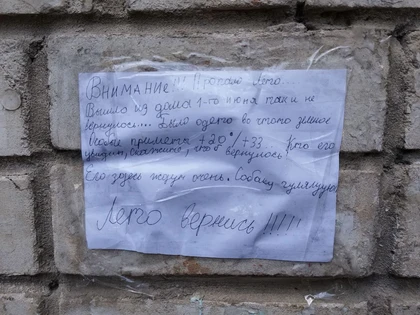 Внимание!!! Пропало Лето...
Вышло из дома 1-го июня так и не
вернулось... Было одето во что-то зелёное
Особые приметы +20°/+33. Кто его
увидит, скажите, чтоб вернулось!
Его здесь ждут очень.
Лето вернись!!!!!